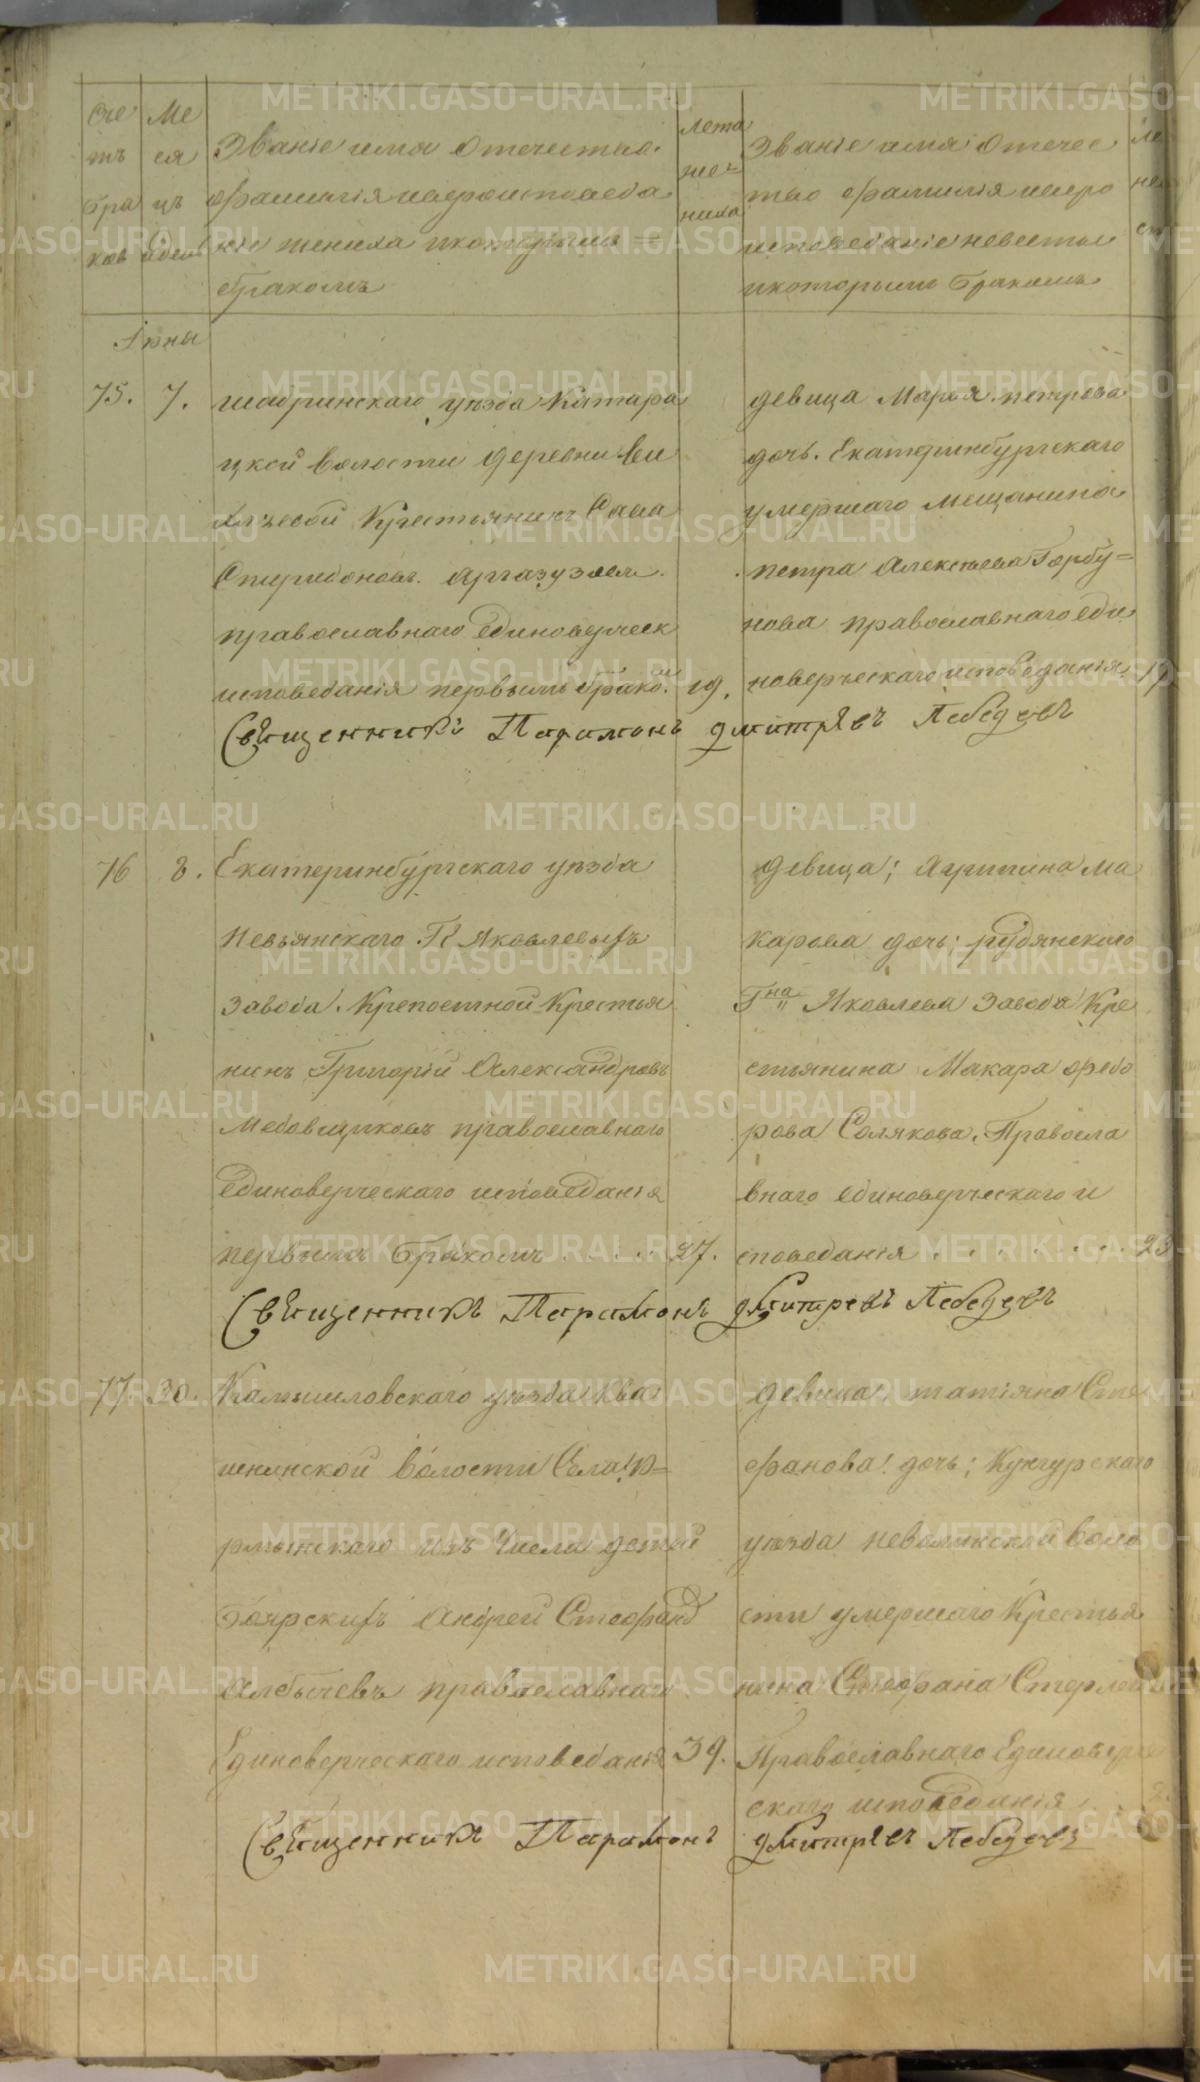 Счетъ браковъ
Месяцъ и день
Званіе имя отечество
фамилія и вероисповеда
ніе жениха и которымъ =
бракомъ
лета жениха
Званіе имя отечес
тво фамилія и веро
исповеданіе невесты
и которымъ бракомъ
Іюнь
75. 7. Шадринскаго уѣзда Катара
цкой волости деревни
Крестьянинъ Сава
Спиридоновъ
православнаго единоверческ
исповеданія первымъ брако.мъ 19.
девица Марья петрова
дочь. Екатеринбургскаго
умершаго мещанина
петра Алексѣева Горбу=
нова православнаго еди
новерческаго исповеданія 19
Священникъ Парамонъ Дмитрѣвъ Лебедевъ
76 8. Екатеринбургскаго уѣзда
Невьянскаго Яковлевыхъ
Завода. Крепостной Крестья
нинъ Григорій Александровъ
Медовщиковъ православнаго
единоверческаго исповеданія
первымъ бракомъ . . . . . . 27.
девица; Агрипина ма
карова дочь; рудянскаго
Гна Яковлева Завода Кре
стьянина Макара федо
рова Солякова. Правосла
внаго единоверческаго и
споведанія . . . . . . . . 23
Священникъ Парамонъ Дмитревъ Лебедевъ
77. 30. Камышловскаго уѣзда Ква
шнинской волости Села
изъ Числа детей
боярскихъ Андрей Стефан
Албычевъ православнаго
Единоверческаго исповеданія 39.
девица, татіяна Сте
фанова! дочь; Кунгурскаго
уѣзда неволинской воло
сти умершаго Крестья
нина Стефана
Православнаго Единоверче
скаго исповедания
Священникъ Парамонъ Дмитрѣвъ Лебедевъ
METRIKI.GASO-URAL.RU